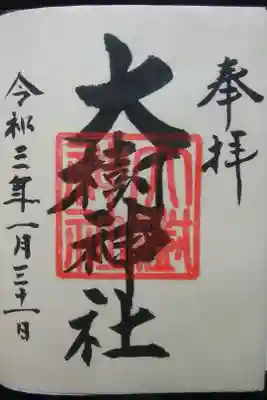 奉拝
大樹神社
令和三年一月三十一日